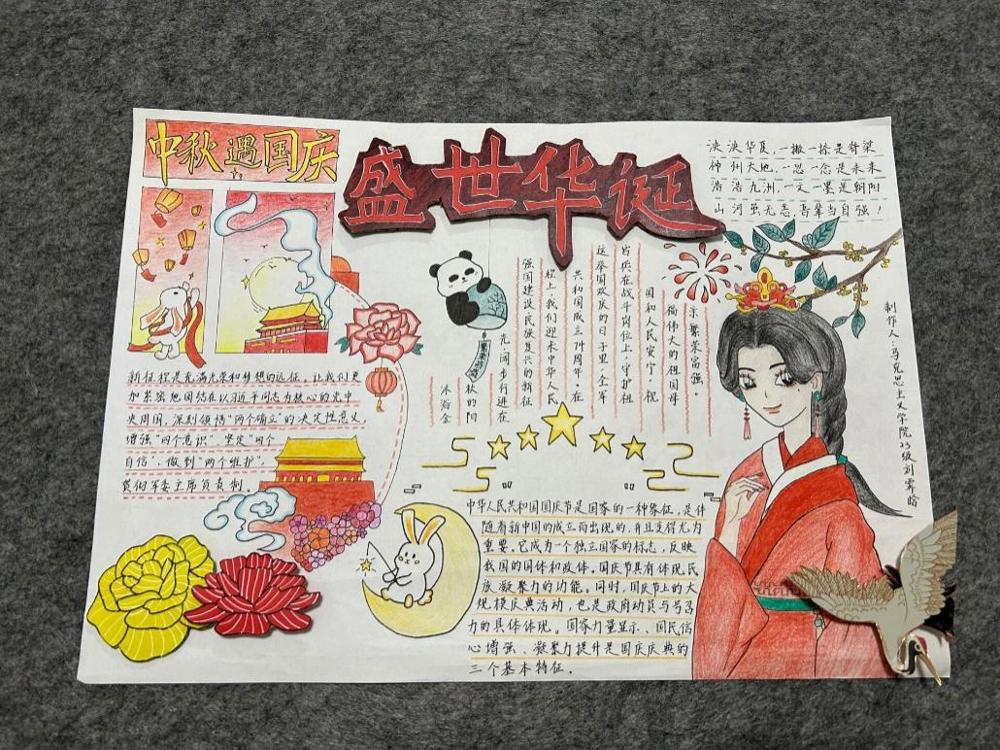 中秋遇国庆
盛世华诞
泱泱华夏,一撇一捺是脊梁
神州大地,一思一念是未来
浩浩九洲,一文一墨是朝阳
山河虽无恙,吾辈当自强!
沐浴金
秋的阳
光,阔步行进在
强国建设、民族复兴的新征
程上,我们迎来中华人民
共和国成立74周年。在
这举国欢庆的日子里,全军
官兵在战斗岗位上,守护祖
国和人民安宁,祝
福伟大的祖国母
亲繁荣富强。
新征程是充满光荣和梦想的远征。让我们更
加紧密地团结在以习近平同志为核心的党中
央周围,深刻领悟“两个确立”的决定性意义,
增强“四个意识”、坚定“四个
自信”、做到“两个维护”,
贯彻军委主席负责制。
中华人民共和国国庆节是国家的一种象征,是伴
随着新中国的成立而出现的,并且变得尤为
重要。它成为一个独立国家的标志,反映
我国的国体和政体。国庆节具有体现民
族凝聚力的功能。同时,国庆节上的大
规模庆典活动,也是政府动员与号召
力的具体体现。国家力量显示、国民信
心增强、凝聚力提升是国庆庆典的
三个基本特征。
制作人:马克思主义学院23级刘霁晗